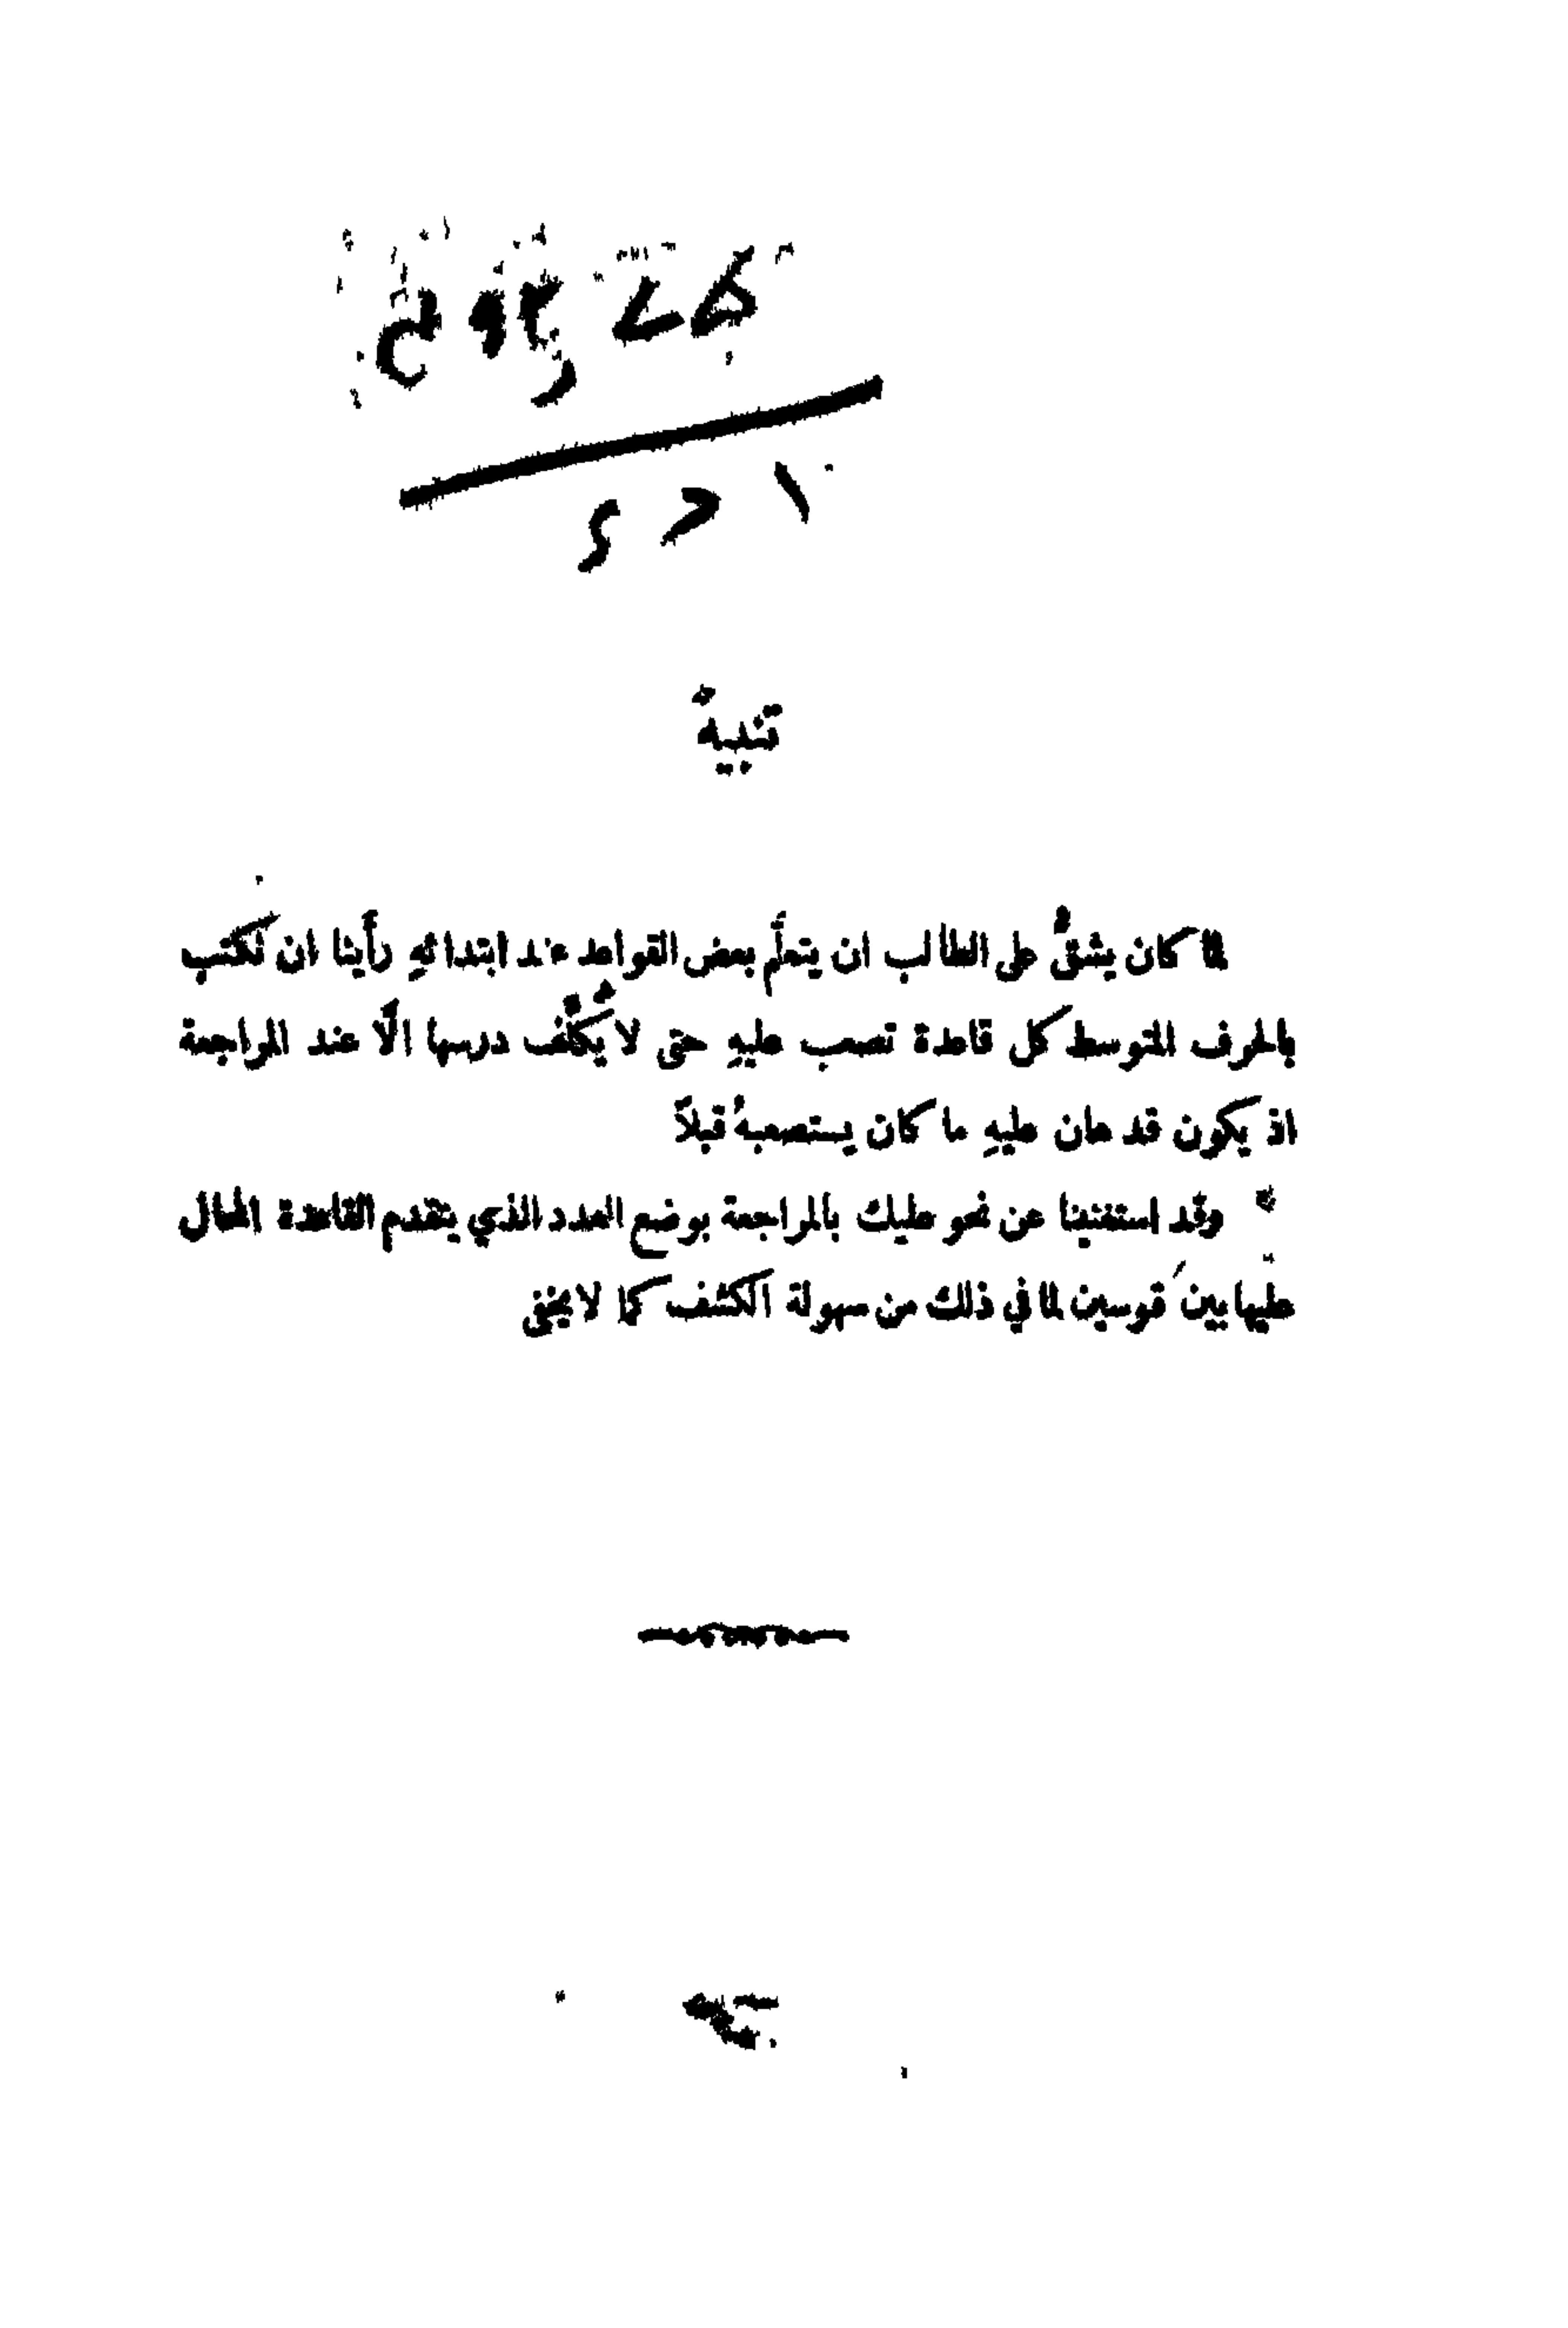 تنبيهٌ
لما كان يشقُّ على الطالب ان يتعلَّم بعض القواعد عند ابتدائهِ رأَينا ان نكتب
بالحرف المتوسط كل قاعدة تصعب عليهِ حتى لا يُكلَّف درسها الَّا عند المراجعة
اذ يكون قد هان عليهِ ما كان يستصعبهُ قبلاً
وقد استغنينا عن نحو عليك بالمراجعة بوضع العدد الذي يتقدم القاعدة المحال
عليها بين قوسين لما في ذلك من سهولة الكشف كما لا يخفى